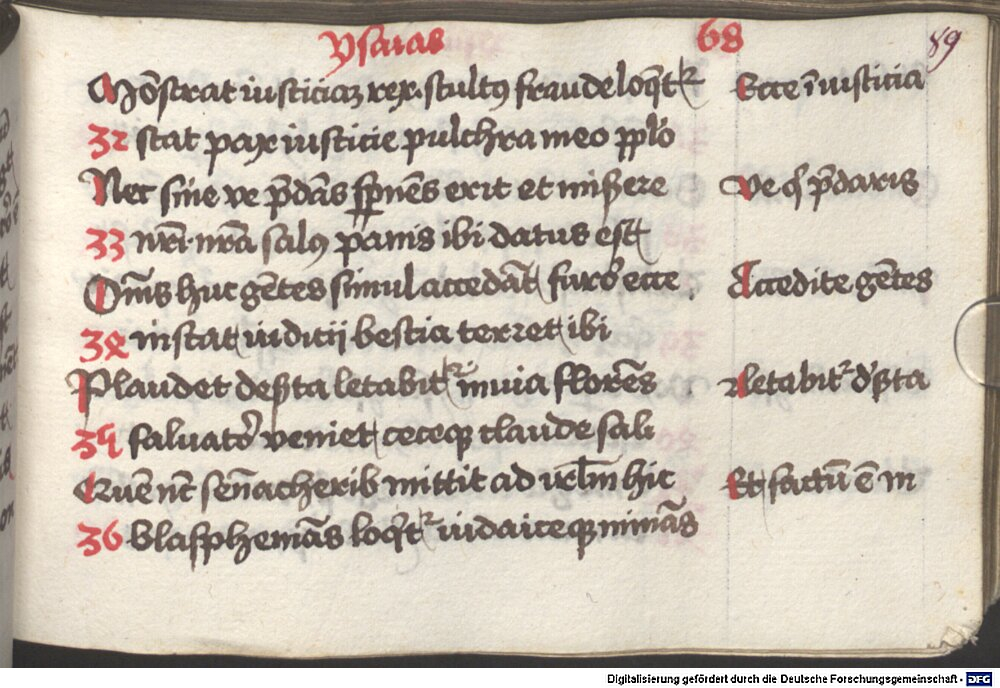 Ysaias 68 89
Mōstrat iusticiaʒ rex. stultꝰ fraude loqͥtᷣ Ecce ī iusticia
32 stat pax iusticie pulchra meo pp̄lo
Nec sine ve p̄dās sp̄nēs erit et misẜere Ve qͥ p̄daris
33 nr̄i. nr̄a salꝰ panis ibi datus est
Om̄s huc gētes simul accedāt furor ecce Accedite gētes
34 instat iuditij bestia terret ibi
Plaudet deẜta letabitᷣ inuia florēs letabitᷣ d'ẜta
35 saluator veniet ceceqꝫ claude sali
Ruēnt sēnacherib mittit ad ir̄lm hic Et factū ē in
36 blasphemās loqͥtᷣ iudaiceqꝫ minās
Digitalisierung gefördert durch die Deutsche Forschungsgemeinschaft - DFG